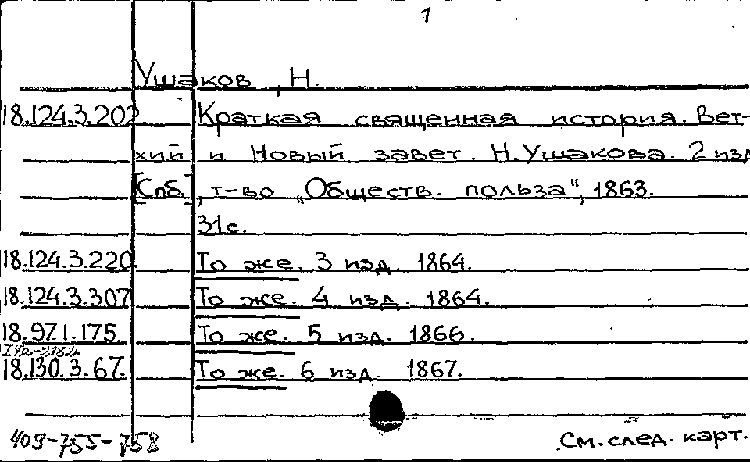 1
Ушаков, Н.
18.124.3.202 Краткая священная история. Вет-
хий и Новый завет. Н. Ушакова. 2 изд
[Спб.], т-во „Обществ. польза", 1863.
31 с.
18.124.3.220 То же. 3 изд. 1864.
18.124.3.307 То же. 4 изд. 1864.
18.971.175 То же. 5 изд. 1866.
18.130.3.67. То же. 6 изд. 1867.
409-755-758 См. след. карт.